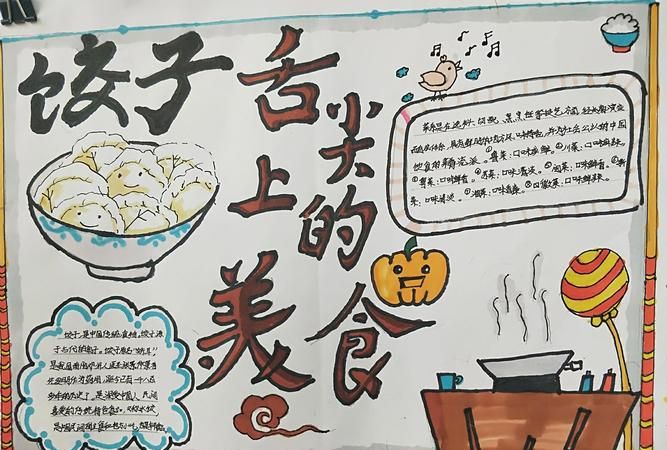 饺子
舌尖上的美食
菜系是在选料、切配、烹饪等技艺方面，经长期演变
而自成体系，具有鲜明的地方风味特色，并为社会公认的中国
饮食的菜肴流派。①鲁菜：口味咸鲜。②川菜：口味麻辣。
③粤菜：口味鲜香。④苏菜：口味清淡。⑤闽菜：口味鲜香。⑥浙
菜：口味清淡。⑦湘菜：口味香辣。⑧徽菜：口味鲜辣。
饺子，是中国传统食物。饺子源
于古代的角子。饺子原名"娇耳"
是我国南阳人医圣张仲景首
先发明作为药用，距今已有一千八百
多年的历史了。是深受中国人民
喜爱的传统特色食品，又称水饺
是中国民间的主食和地方小吃